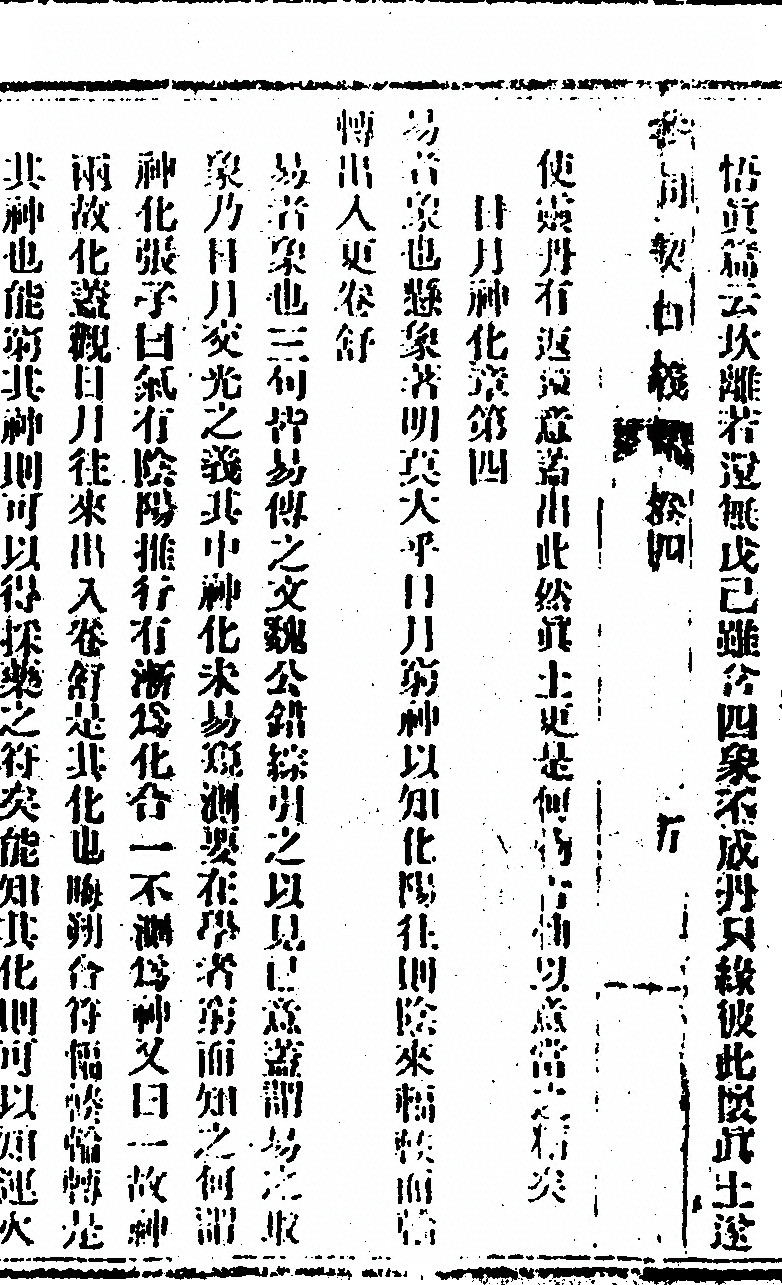 悟眞篇云坎離若還無戊己雖含四象不成丹只緣彼此懷眞土遂
參同契口義 卷四
使靈丹有返還意蓋出此然眞土更是何物古仙以意當之精矣
日月神化章第四
易者象也懸象著明莫大乎日月窮神以知化陽往則陰來輻輳而輪
轉出入更卷舒
易者象也三句皆易傳之文魏公錯綜引之以見己意蓋謂易之取
象乃日月交光之義其中神化未易窺測要在學者窮而知之何謂
神化張子曰氣有陰陽推行有漸爲化合一不測爲神又曰一故神
兩故化蓋觀日月往來出入卷舒是其化也晦朔合符輻輳輪轉是
其神也能窮其神則可以得採藥之符矣能知其化則可以知運火